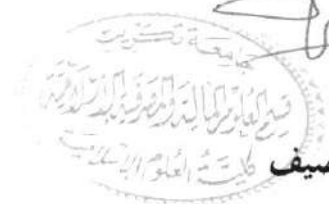 جامعة تكريت
قسم العلوم المالية والمصرفية الإسلامية
كلية العلوم الإسلامية
صيف